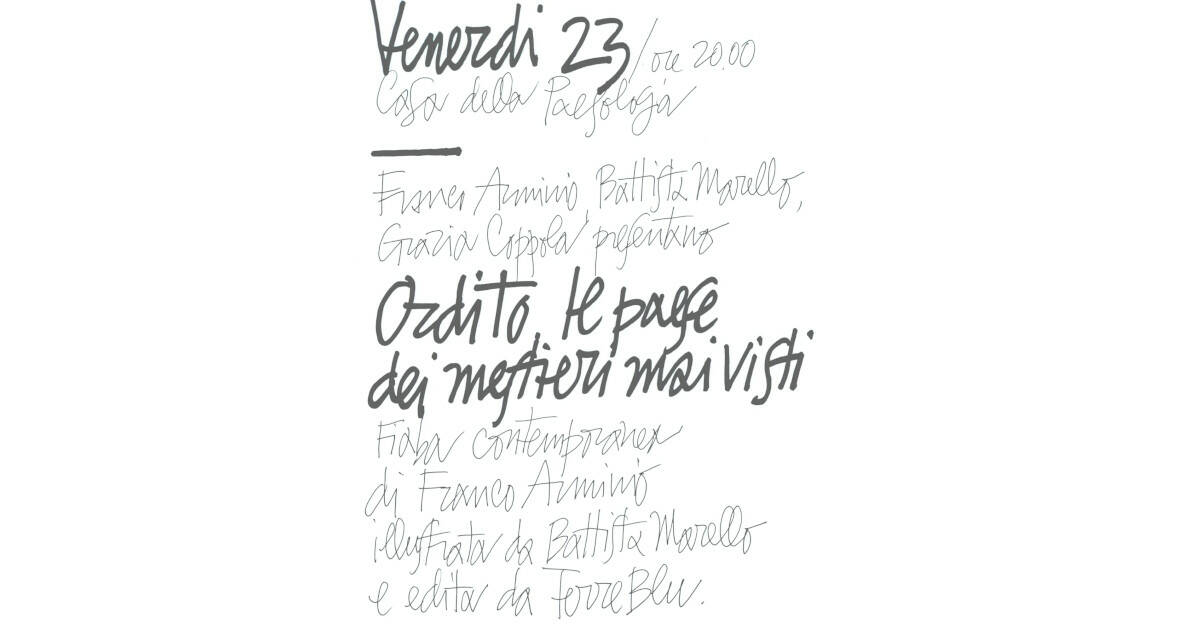 Venerdi 23/ore 20.00
Casa della Paesologia
Franco Arminio, Battista Marello,
Grazia Coppola presentano
Ordito, il paese
dei mestieri mai visti
Fiaba contemporanea
di Franco Arminio
illustrata da Battista Marello
e edita da TerreBlu.